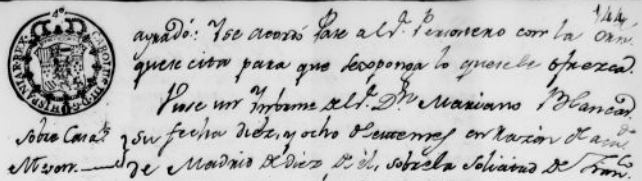 144
CAROLUS III D G HISPANIAR REX
agrado: Y se acordó Pase al S.r Personero con la orn.
que se cita para que se exponga lo que se le ofrezca.
Viose un Informe del S.r D.n Mariano Blancas,
sobre Casa su fecha diez, y ocho de en razon de
Meson. de Madrid de diez de él, sobre la solicitud de Fran.co